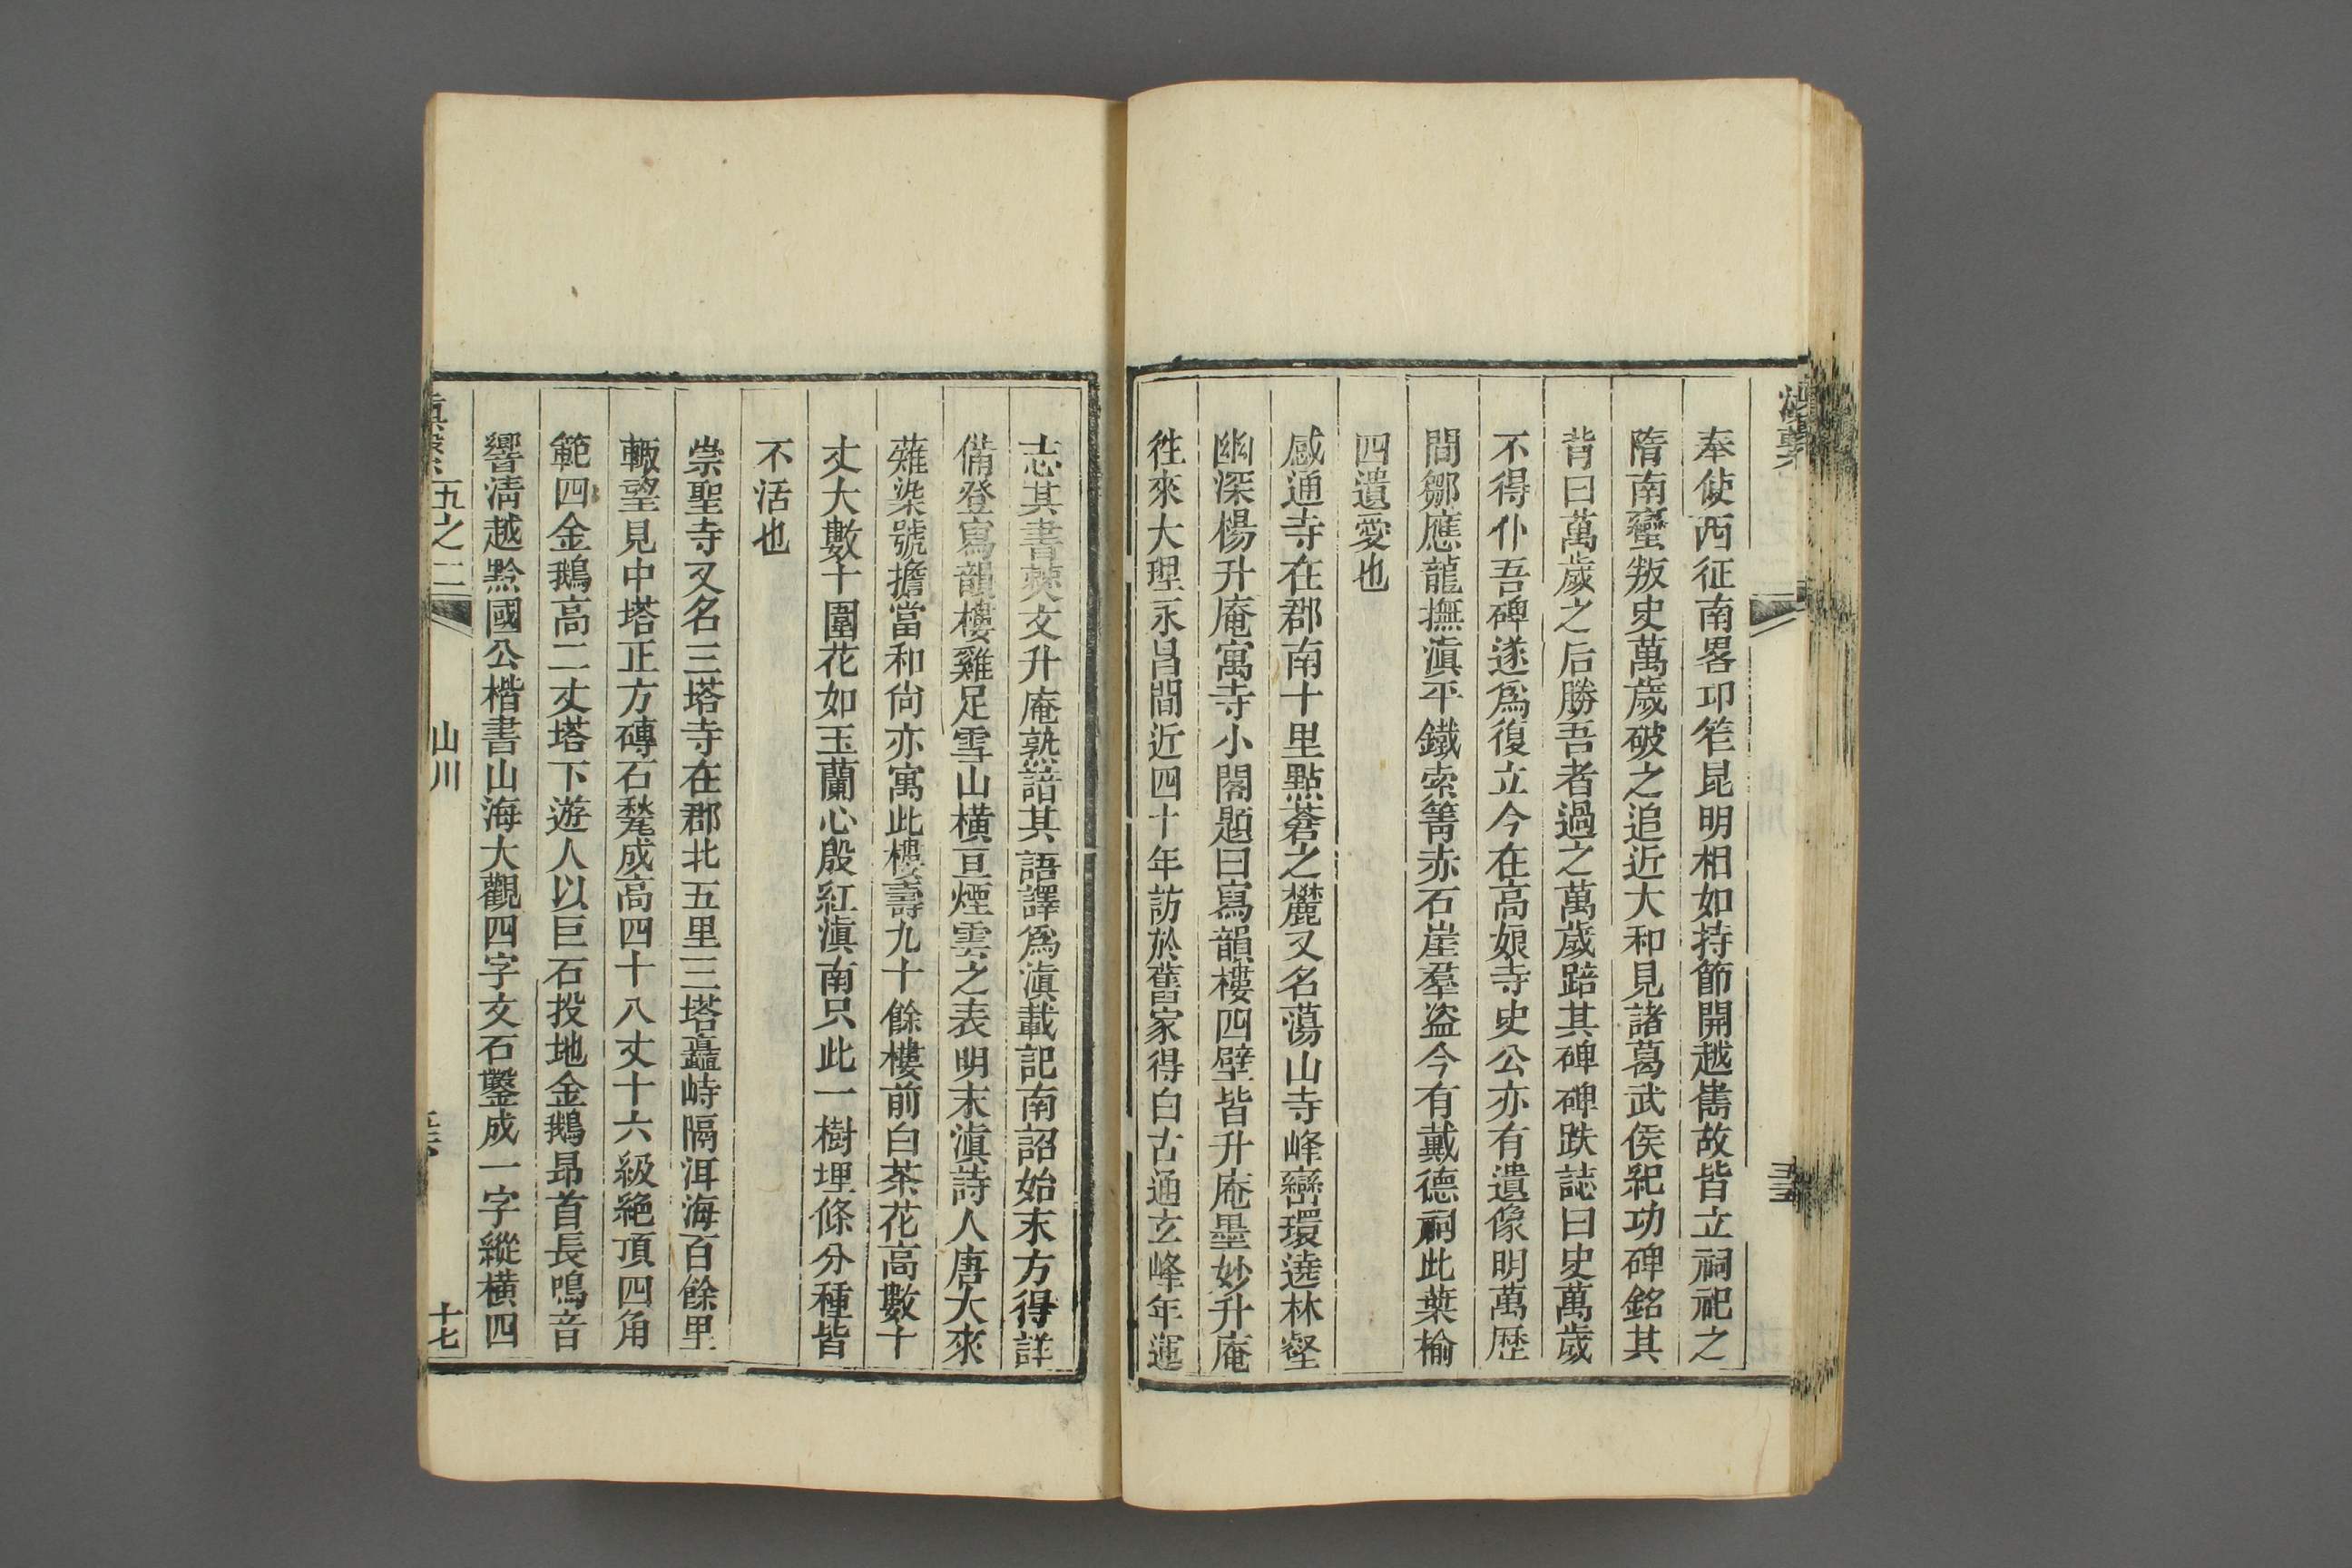 滇繫
奉使西征南畧卭筰昆明相如持節開越巂故皆立祠祀之
隋南蠻叛史萬歲破之追近大和見諸葛武侯紀功碑銘其
背曰萬歲之后勝吾者過之萬歲踣其碑碑趺誌曰史萬歲
不得仆吾碑遂爲復立今在高娘寺史公亦有遺像明萬歷
間鄒應龍撫滇平鐵索箐赤石崖羣盜今有戴德祠此葉榆
四遺愛也
感通寺在郡南十里點蒼之麓又名蕩山寺峰巒環遶林壑
幽深楊升庵寓寺小閣題曰寫韻樓四壁皆升庵墨妙升庵
徃來大理永昌間近四十年訪於舊家得白古通玄峰年運
志其書僰文升庵熟諳其語譯爲滇載記南詔始末方得詳
備登寫韻樓雞足雪山橫亘煙雲之表明末滇詩人唐大來
薙染號擔當和尙亦寓此樓壽九十餘樓前白茶花高數十
丈大數十圍花如玉蘭心殷紅滇南只此一樹埋條分種皆
不活也
崇聖寺又名三塔寺在郡北五里三塔矗峙隔洱海百餘里
輙望見中塔正方磚石甃成高四十八丈十六級絶頂四角
範四金鵝高二丈塔下遊人以巨石投地金鵝昂首長鳴音
響淸越黔國公楷書山海大觀四字文石鑿成一字縱橫四
五之二
山川
十七